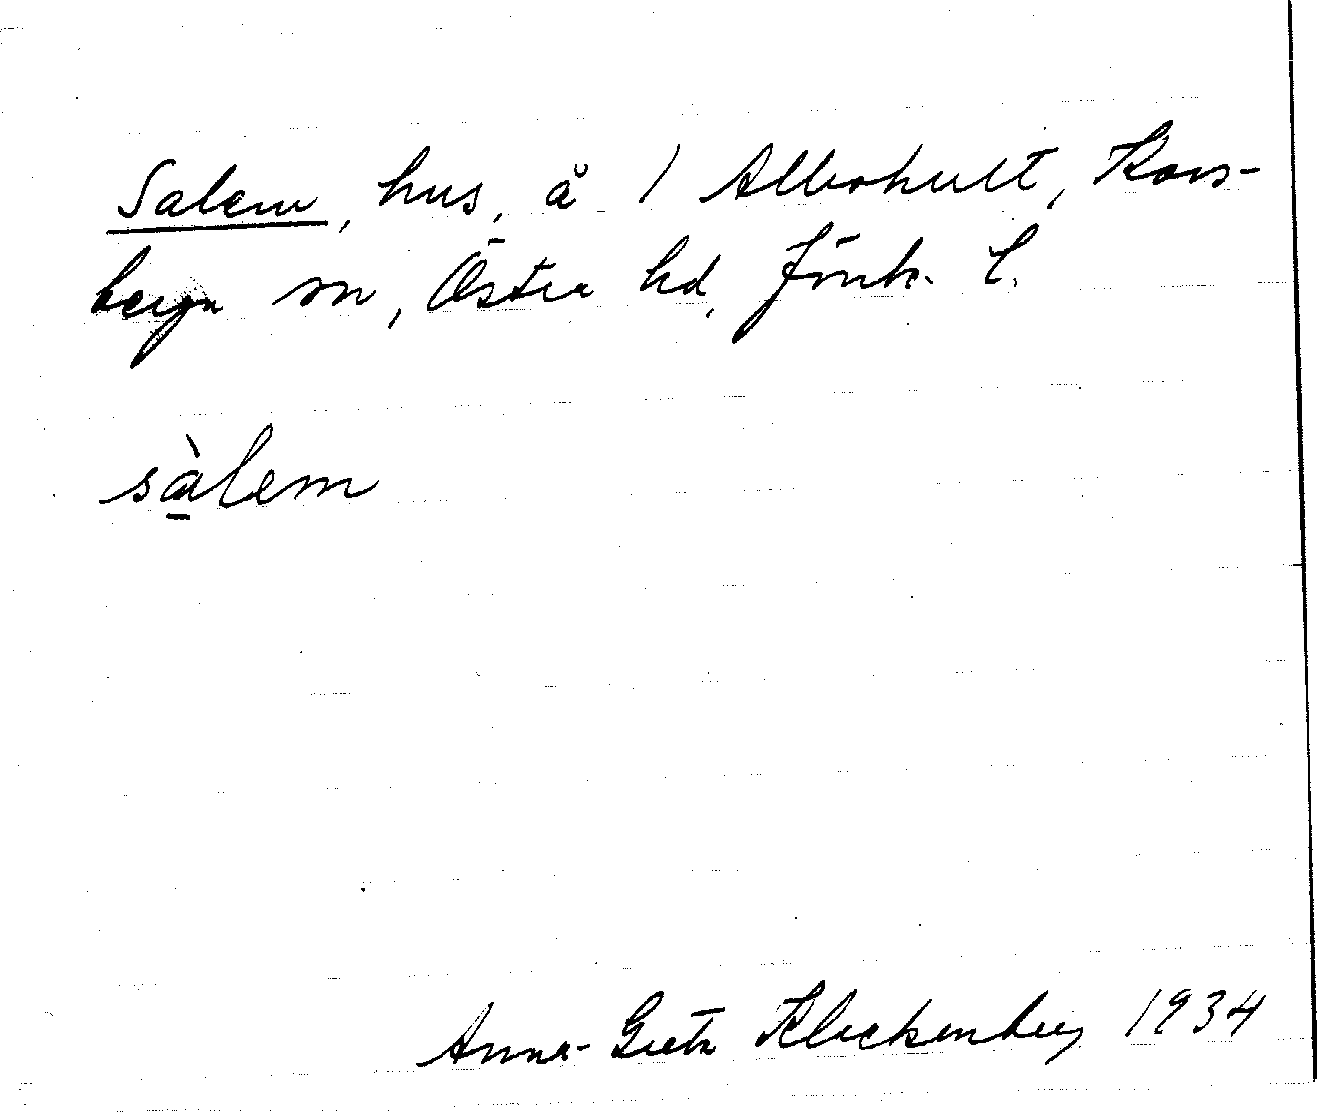 Salem, hus, å 1 Albohult, Kors-
berga sn, Östra hd, Jönk. l.
sàlem
Anna-Greta Klockenberg 1934